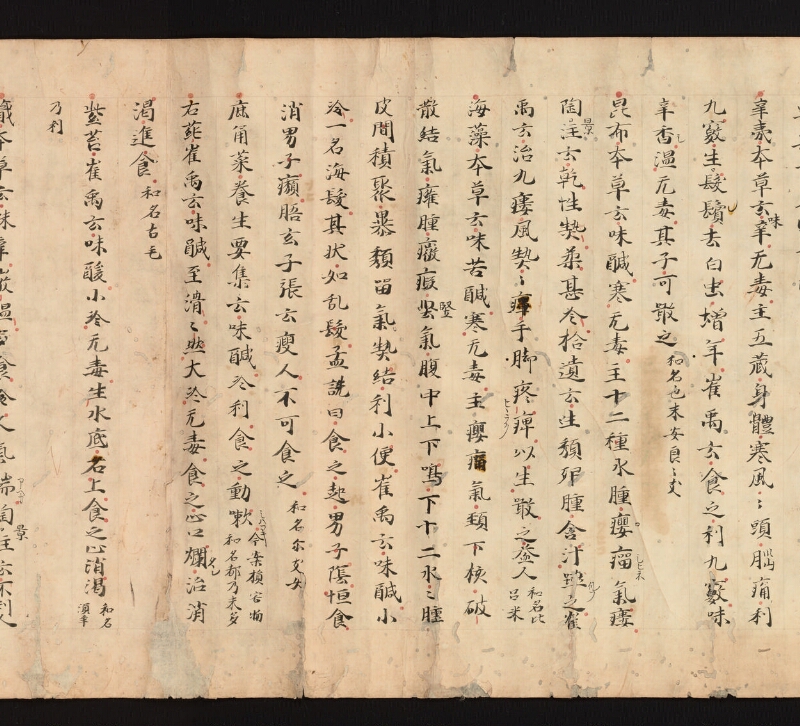 辛夷本草云味辛无毒主五蔵身體寒風〻頭𦛁痛利
九竅生髮鬚去白虫増年崔禹云食之利九竅味
辛香温无毒其子可噉之 和名也末安良〻支
昆布本草云味鹹寒无毒主十二種水腫癭瘤氣瘻
陶景注云乾性𤍠柔甚冷拾遺云主頽卵腫含汁𫟒之崔
禹云治九瘻風𤍠〻痺手脚疼痺以生噉之益人 和名比呂米
海藻本草云味苦鹹寒无毒主癭瘤氣頚下核破
散結氣癰腫癥瘕堅氣腹中上下鳴下十二水〻腫
皮間積聚暴㿗留氣𤍠結利小便崔禹云味鹹小
冷一名海髮其状如乱髮孟詵曰食之起男子陰恒食
消男子㿗𦛜玄子張云痩人不可食之 和名尓支女
鹿角菜養生要集云味鹹冷利食之動嗽 今案損害物 和名都乃末多
右葅崔禹云味鹹至滑〻然大冷无毒食之心口爛治消
渇進食 和名古毛
紫苔崔禹云味酸小冷无毒生水底石上食之心消渇 和名須牟
乃利
本草云味辛 温 食